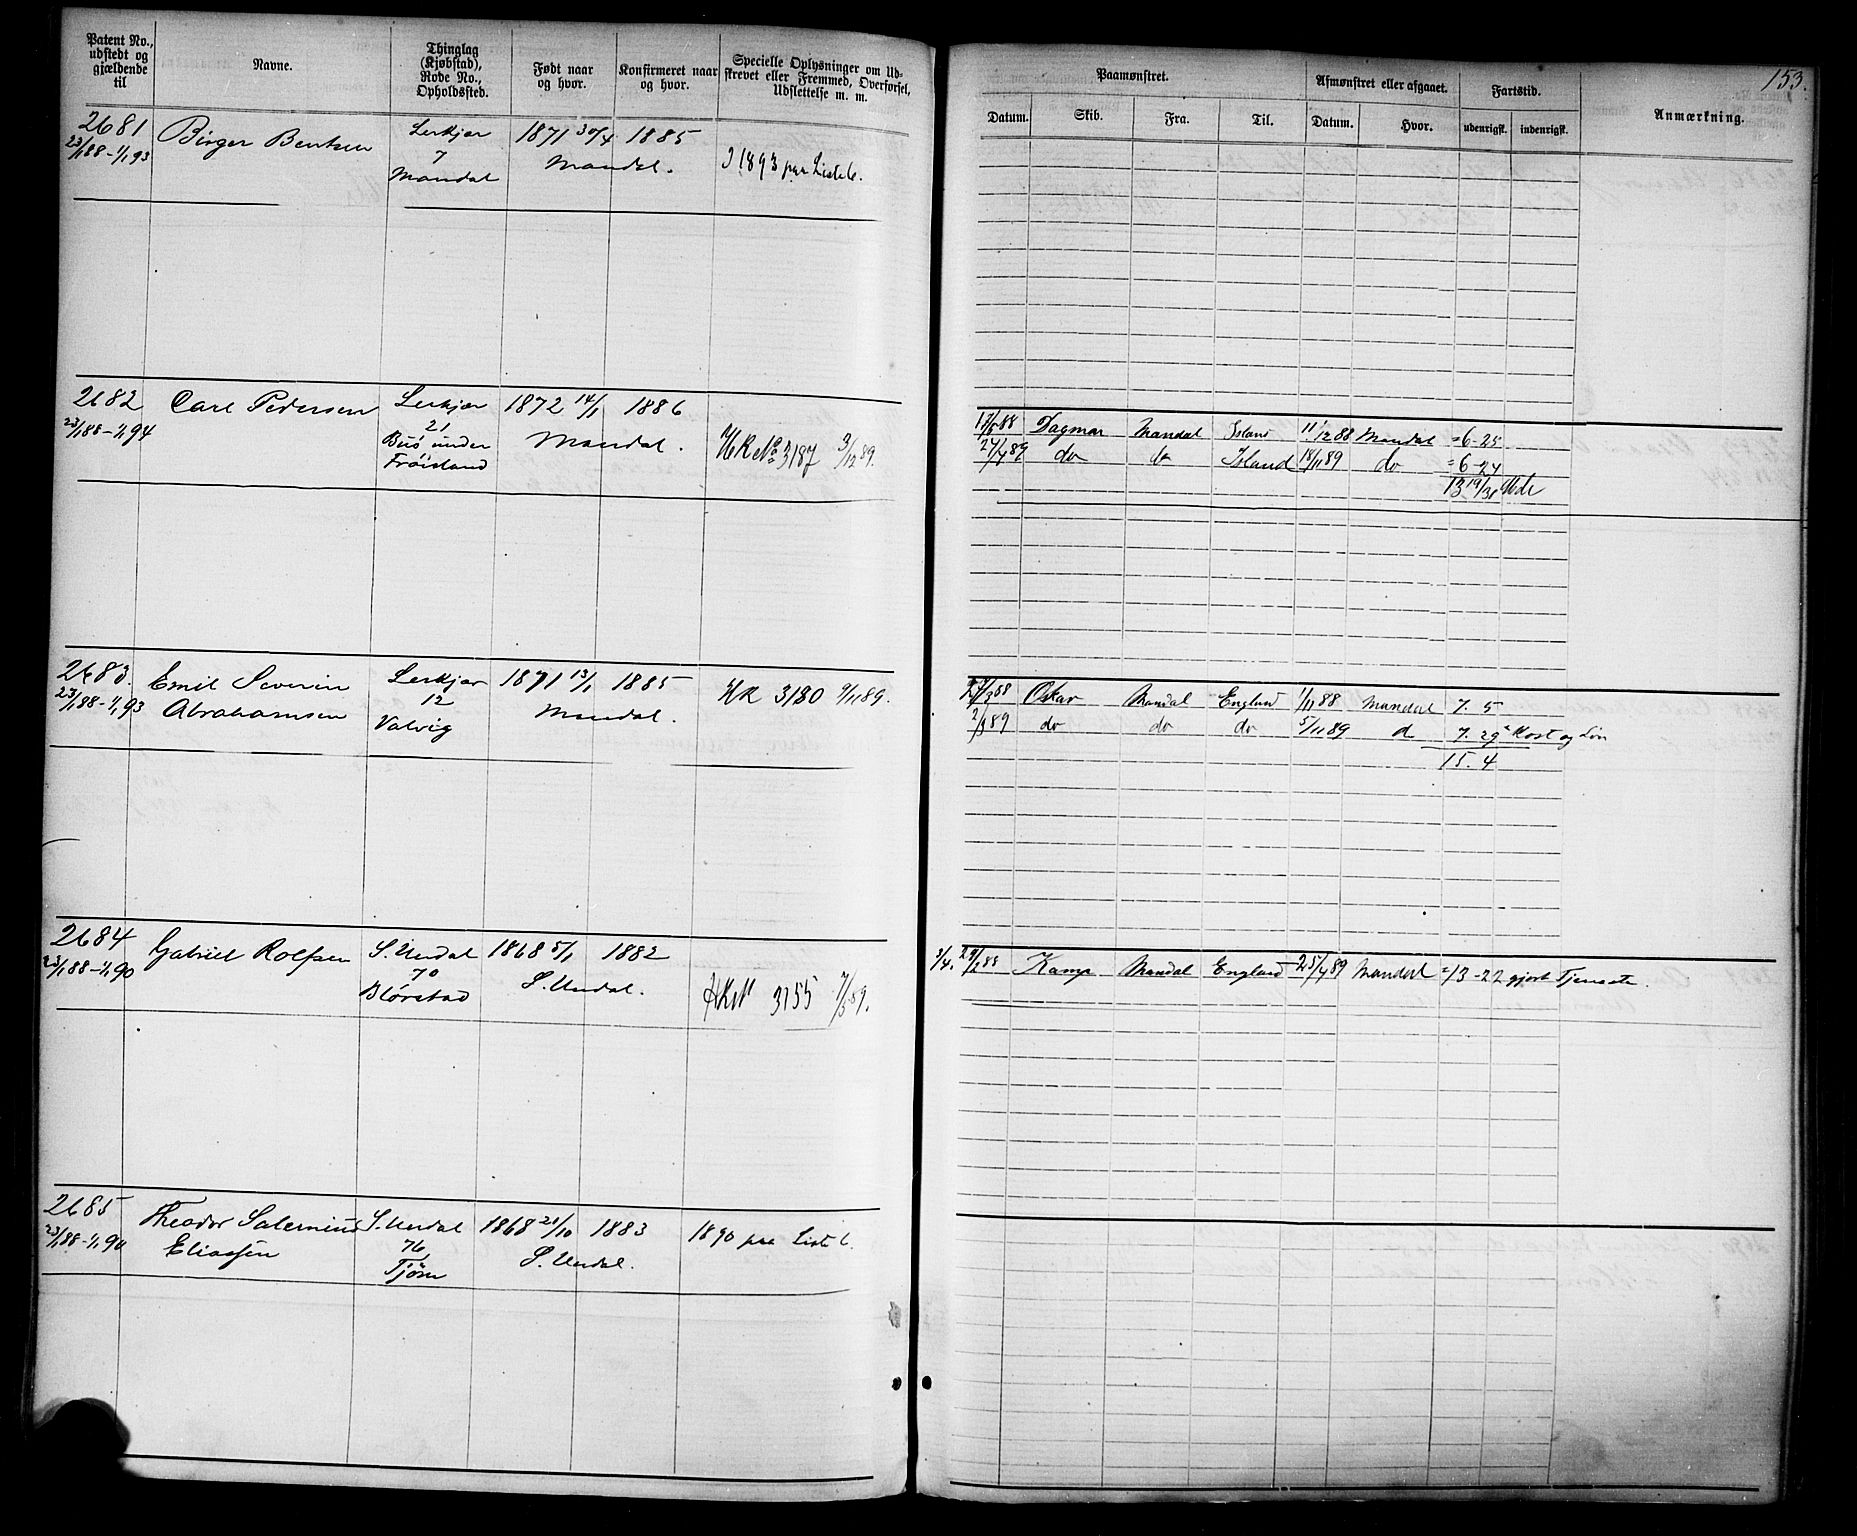 Patent No., udstedt og gjældende til
Navne.
Thinglag (Kjøbstad), Rode No., Opholdssted.
Født naar og hvor.
Konfirmeret naar og hvor.
Specielle Oplysninger om Udskrevet eller Fremmed, Overførsel, Udslettelse m. m.
Paamønstret.
Afmønstret eller afgaaet.
Fartstid.
153.
Datum.
Skib.
Fra.
Til.
Datum.
Hvor.
udenrigsk.
indenrigsk.
Anmærkning.
2681 Birger Bentsen Lerkjær 1871 30/4 1885
23/1 88 - 1/1 93 7 Mandal. I 1893 paa Liste 6.
Mandal
2682 Carl Pedersen Lerkjær 1872 14/1 1886
23/1 88 - 1/1 94 21 Mandal. HR No 3187 3/12 89.
Buø under
Frøisland
Dagmar Mandal Island 11/12 88 Mandal = 6-25
do Island 18/11 89 do = 6-24
13 19/30 Mdr
2683. Emil Severin Lerkjær 1871 13/1 1885
23/1 88 - 1/1 93 Abrahamsen 12 Mandal. HR 3180 9/11 89.
Valvig
Oskar Mandal England 1/11 88 Mandal 7. 5
do do do 5/11 89 7. 29 Kost og Løn
15. 4
2684 Gabriel Rolfsen S. Undal 1868 5/1 1882
23/1 88 - 1/1 90 70 S. Undal.
3155
Kamp Mandal England 25/4 89 Mandal = 13-22 gjort Tjeneste.
2685 Theodor Salemius S. Undal 1868 21/10 1883 1890 paa Liste 6.
23/1 88 - 1/1 90 Eliassen 76 S. Undal.
Tjøm